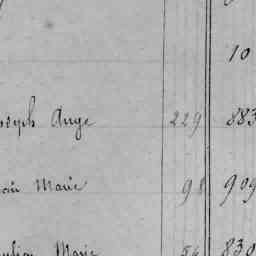 10
oseph Ange 229 883
Marie 98 909
Marie 56 830